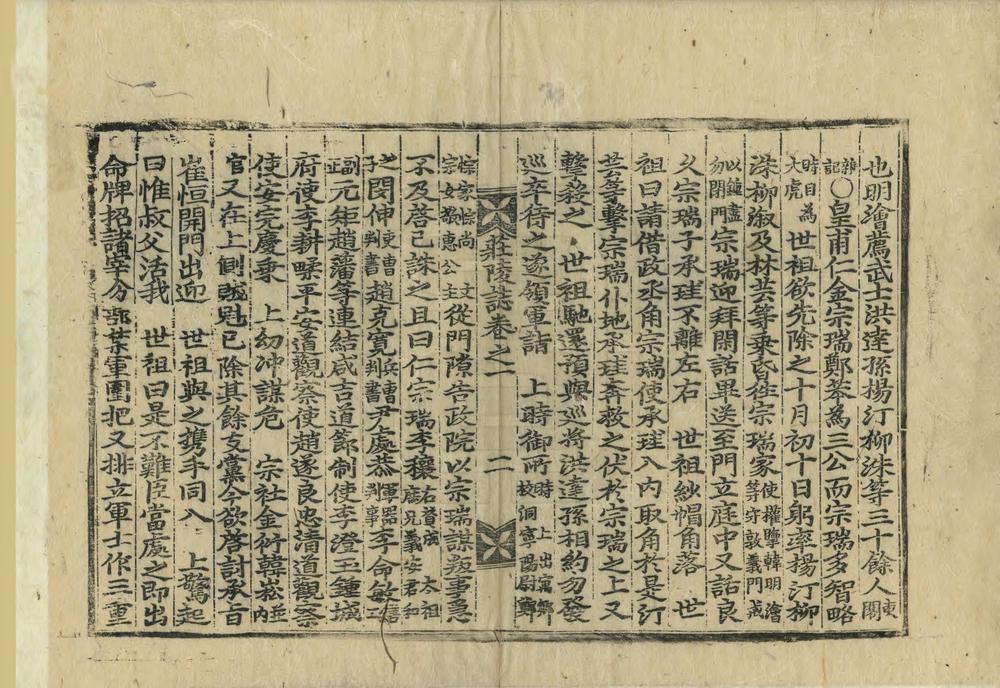 也明澮薦武士洪達孫楊汀柳洙等三十餘人東閣
雜記〇皇甫仁金宗瑞鄭苯為三公而宗瑞多智略
時目為大虎 世祖欲先除之十月初十日躬率楊汀柳
洙柳淑及林芸等乘昏往宗瑞家使權擥韓明澮等守敦義門戒
以鍾盡勿閉門宗瑞迎拜閑話畢送至門立庭中又話良
久宗瑞子承珪不離左右 世祖紗帽角落 世
祖曰請借政丞角宗瑞使承珪入內取角於是汀
芸等擊宗瑞仆地承珪奔救之伏於宗瑞之上又
擊殺之 世祖馳還預與巡將洪達孫相約勿發
巡卒待之遂領軍詣 上時御所時上出寓鄕校洞寧陽尉鄭
莊陵誌卷之一 二
悰家悰尚文宗女敬惠公主從門隙告政院以宗瑞謀叛事急
不及啓已誅之且曰仁宗瑞李穰右贊成太祖庶兄義安君和
之子閔伸吏曹判書趙克寬兵曹判書尹處恭軍器判事李命敏繕工
副正元矩趙藩等連結咸吉道節制使李澄玉鍾城
府使李耕㽥平安道觀察使趙遂良忠淸道觀察
使安完慶乘 上幼冲謀危 宗社金衍韓崧並內
官又在上側賊魁已除其餘支黨今欲啓討承旨
崔恒開門出迎 世祖與之携手同入 上驚起
曰惟叔父活我 世祖曰是不難臣當處之即出
命牌招諸宰分部禁軍圍把又排立軍士作三重